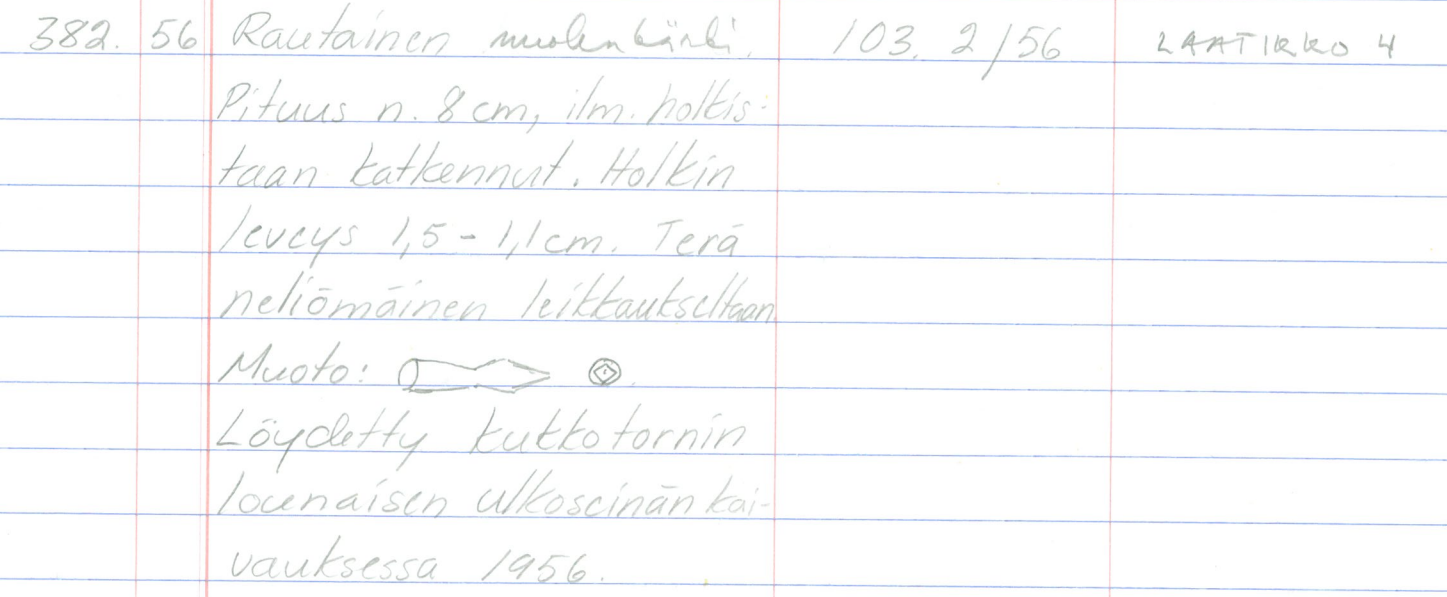 382. 56 Rautainen nuolenkärki. 103. 2/56 LAATIKKO 4
Pituus n. 8 cm, ilm. holkis-
taan katkennut. Holkin
leveys 1,5 - 1,1 cm. Terä
neliömäinen leikkaukseltaan.
Muoto:
Löydetty kukkotornin
lounaisen ulkoseinän kai-
vauksessa 1956.